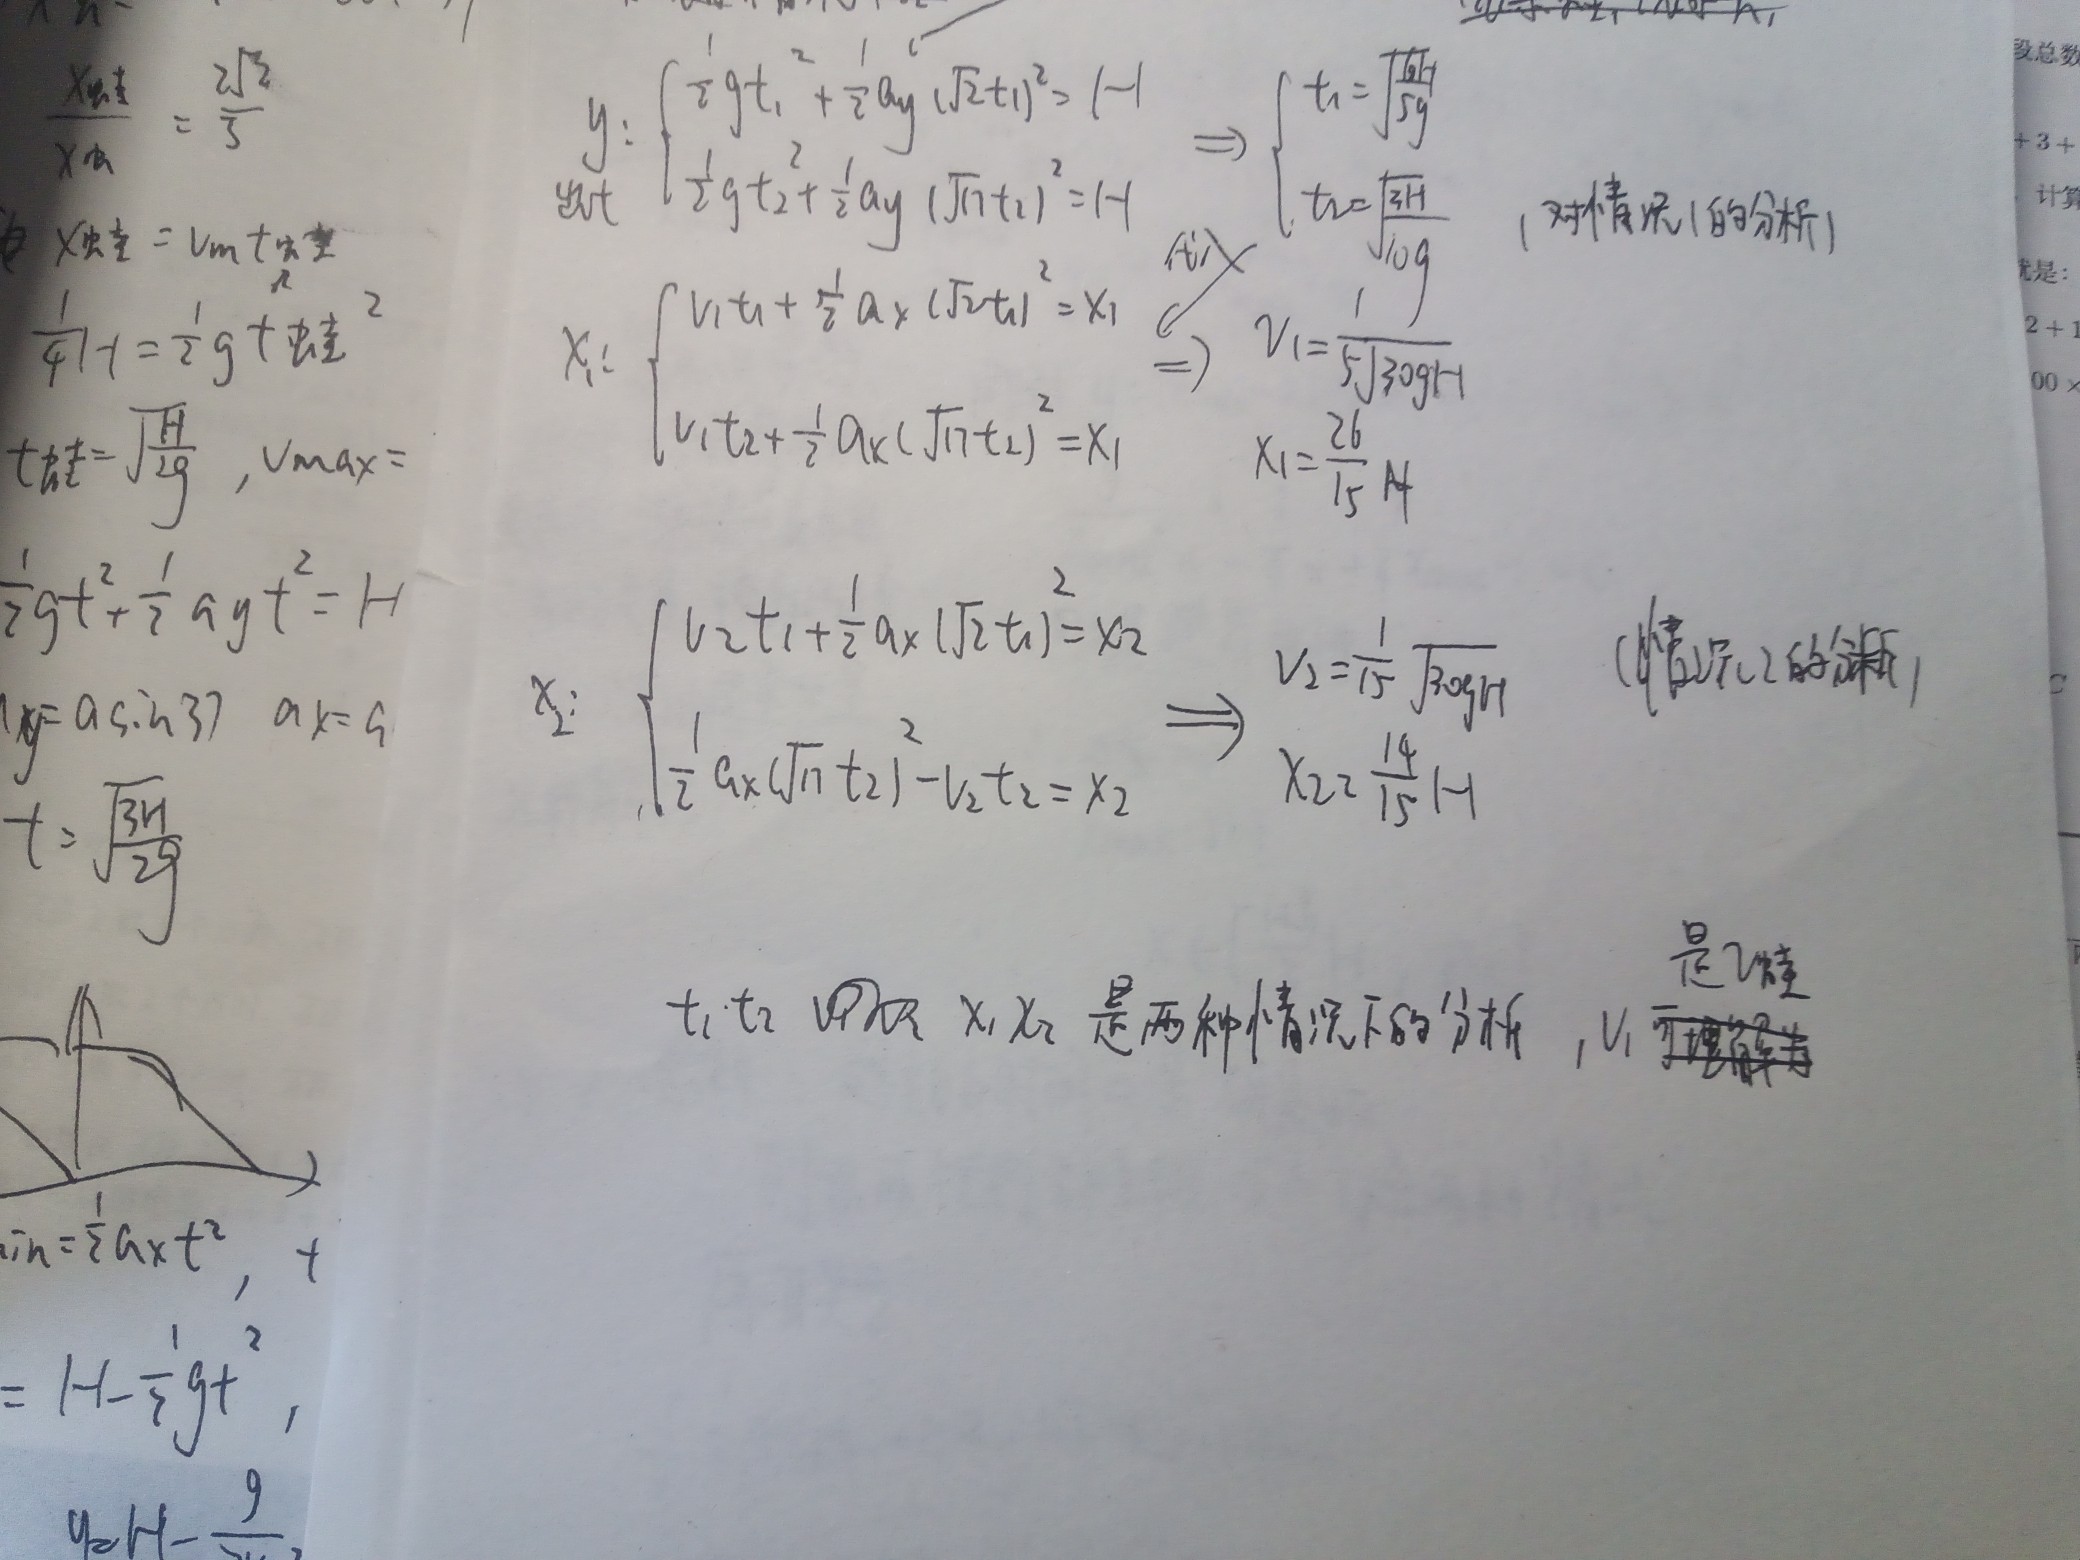 x蛙/x虫 = 2√2/3
x蛙 = vm t蛙
1/4 H = 1/2 g t蛙²
t蛙 = √(H/2g) , vmax =
1/2 gt² + 1/2 ay t² = H
ay = a sin37 ax = a
t = √(3H/2g)
in = 1/2 ax t² , t
= H - 1/2 gt² ,
y = H - g
y: { 1/2 gt₁² + 1/2 ay (√2 t₁)² = H
1/2 gt₂² + 1/2 ay (√17 t₂)² = H
⇒ { t₁ = √(6H/5g)
t₂ = √(3H/10g) (对情况1的分析)
代入
x₁: { v₁t₁ + 1/2 ax (√2 t₁)² = x₁
v₁t₂ + 1/2 ax (√17 t₂)² = x₁
⇒ v₁ = 1/5√30gH
x₁ = 26/15 H
x₂: { v₂t₁ + 1/2 ax (√2 t₁)² = x₂
1/2 ax (√17 t₂)² - v₂t₂ = x₂
⇒ v₂ = 1/15 √30gH (情况2的分析)
x₂ = 14/15 H
t₁ t₂ x₁ x₂ 是两种情况下的分析 , v₁ 是v蛙
段总数
+ 3 +
计算
就是:
2 + 1
00 ×